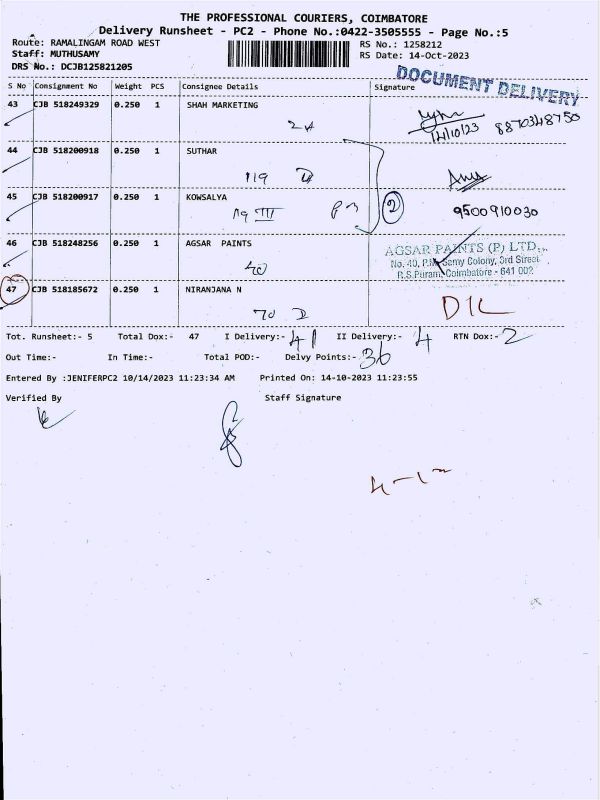 THE PROFESSIONAL COURIERS, COIMBATORE
Delivery Runsheet - PC2 - Phone No.:0422-3505555 - Page No.:5
Route: RAMALINGAM ROAD WEST RS No.: 1258212
Staff: MUTHUSAMY RS Date: 14-Oct-2023
DRS No.: DCJB125821205
DOCUMENT DELIVERY
S No Consignment No Weight PCS Consignee Details Signature
43 CJB 518249329 0.250 1 SHAH MARKETING
14/10/23 8870348750
44 CJB 518200918 0.250 1 SUTHAR
119
45 CJB 518200917 0.250 1 KOWSALYA
2
119 III 9500910030
46 CJB 518248256 0.250 1 AGSAR PAINTS
AGSAR PAINTS (P) LTD.,
No. 40, P.M. Samy Colony, 3rd Street
40
R.S.Puram, Coimbatore - 641 002
47 CJB 518185672 0.250 1 NIRANJANA N
70 D D/L
Tot. Runsheet:- 5 Total Dox:- 47 I Delivery:- 41 II Delivery:- 4 RTN Dox:- 2
Out Time:- In Time:- Total POD:- Delvy Points:- 36
Entered By :JENIFERPC2 10/14/2023 11:23:34 AM Printed On: 14-10-2023 11:23:55
Verified By Staff Signature